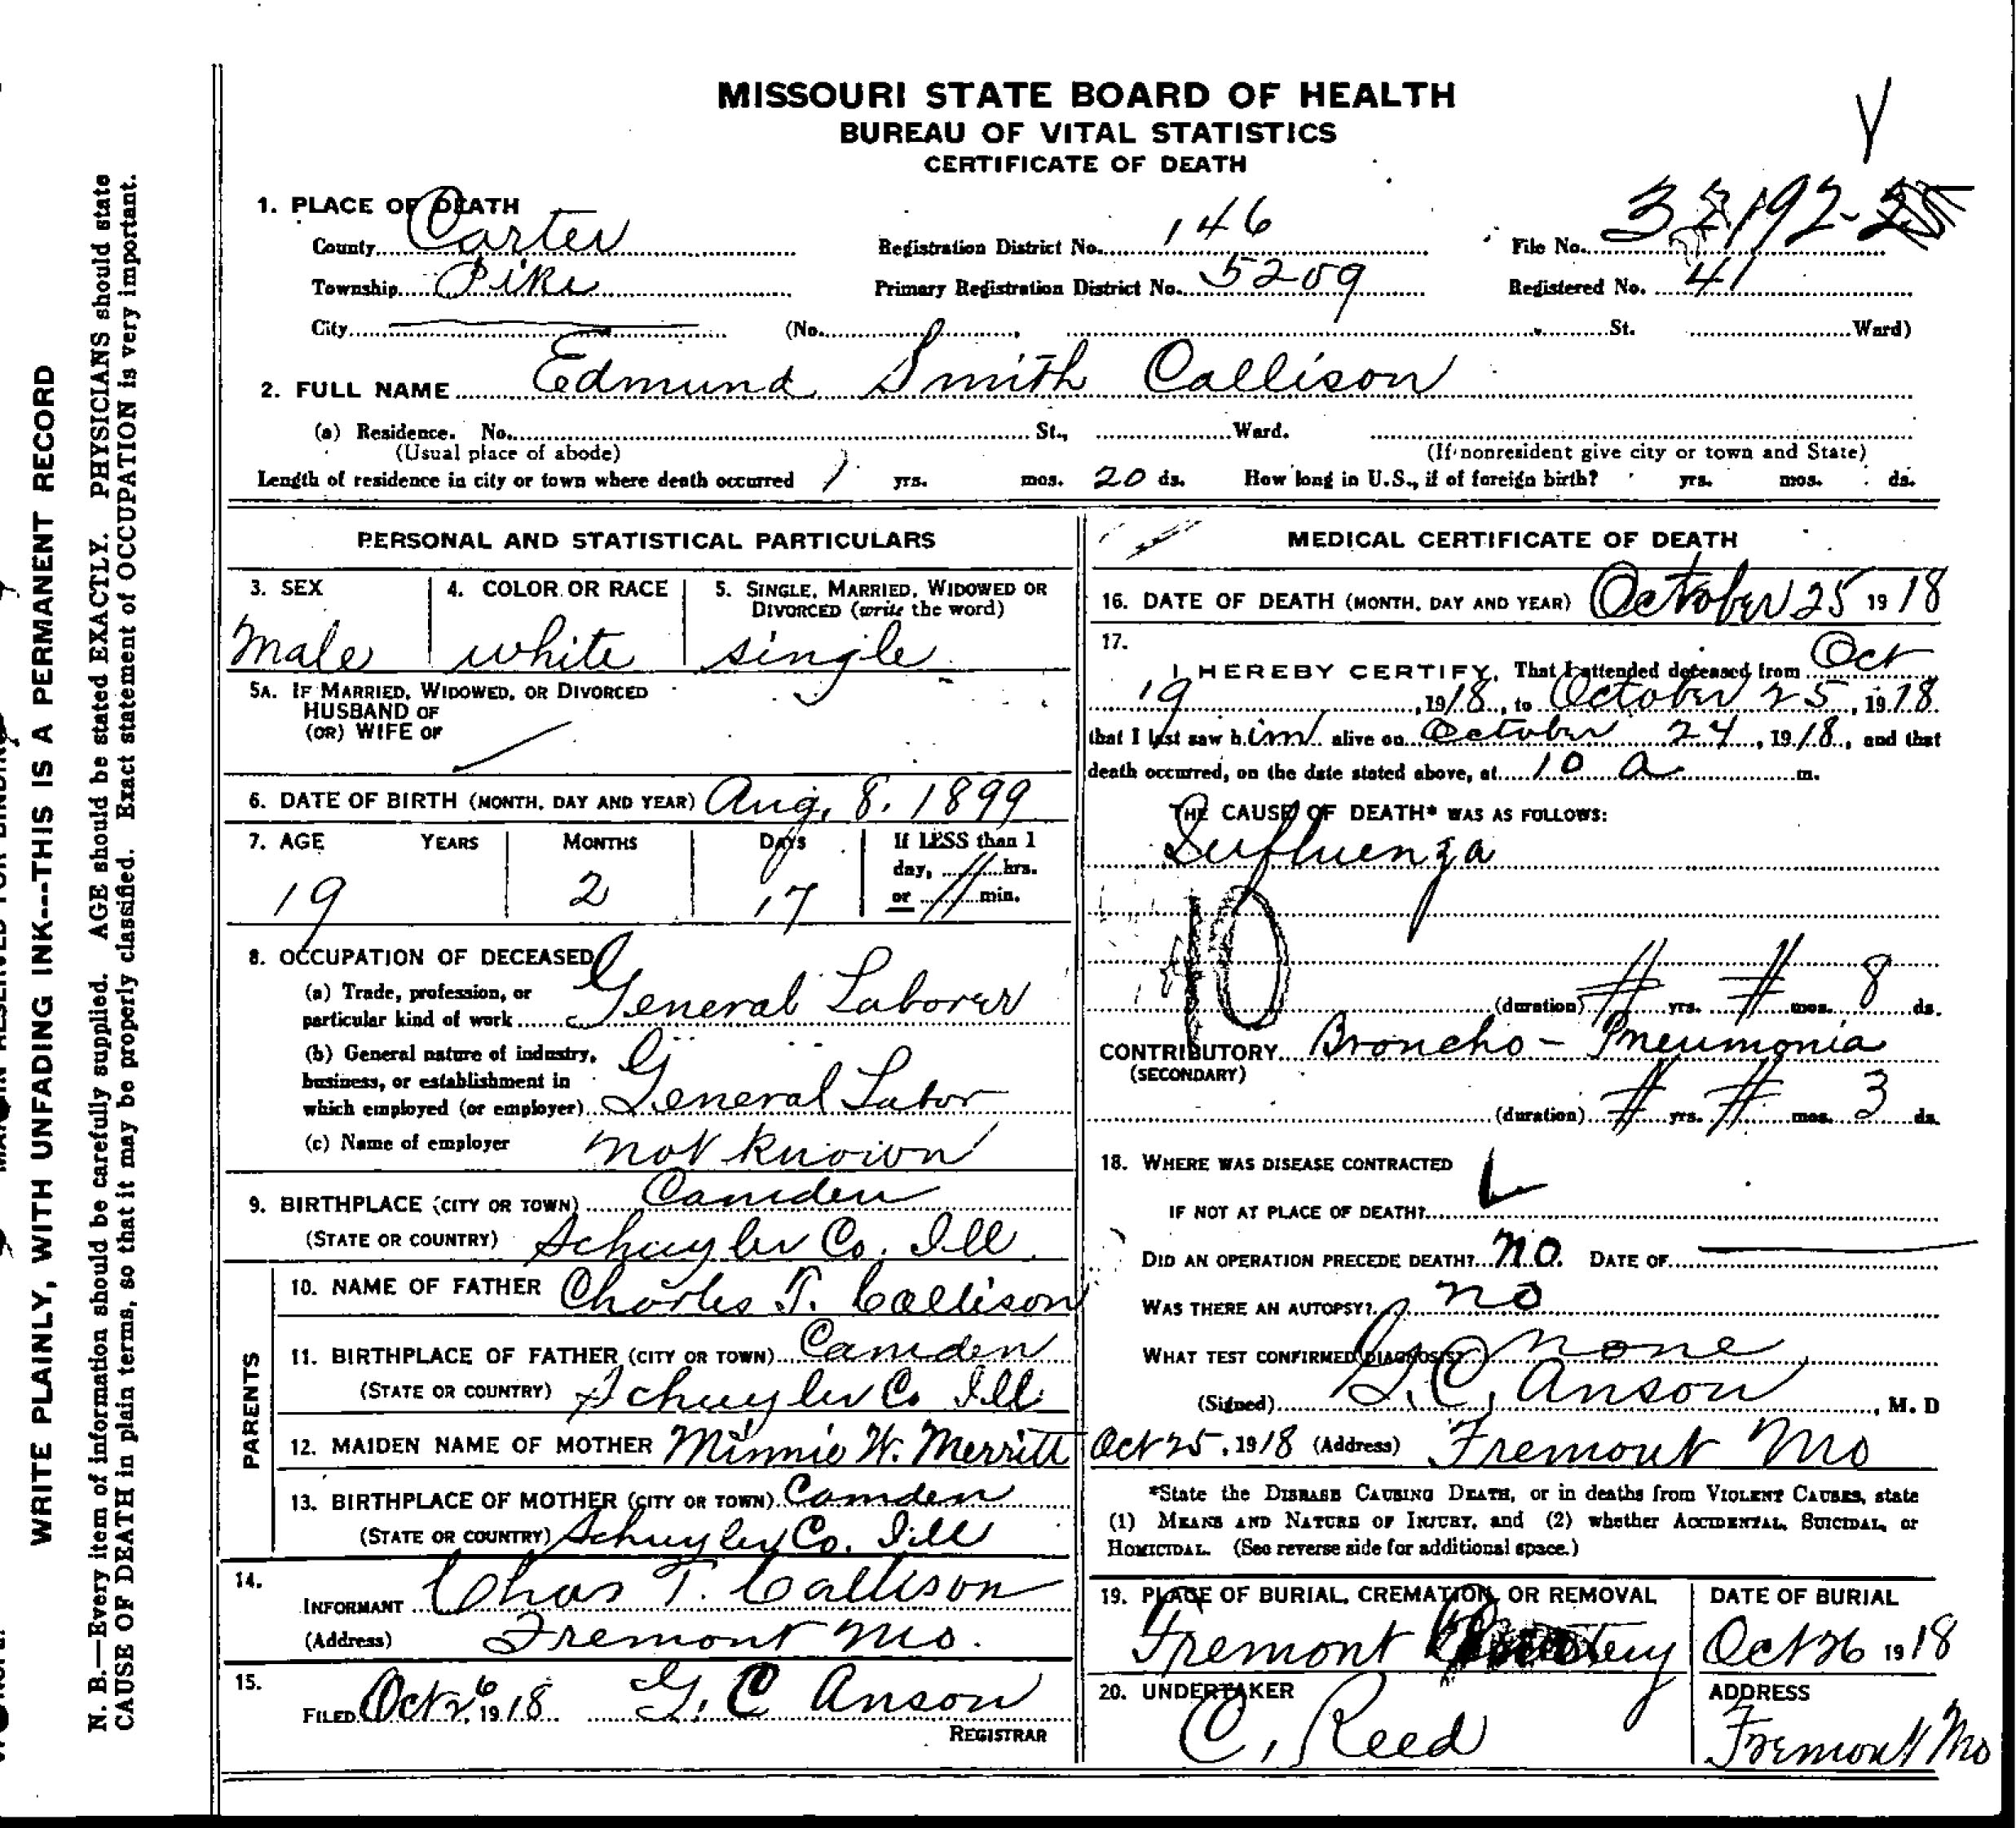 MISSOURI STATE BOARD OF HEALTH
BUREAU OF VITAL STATISTICS
CERTIFICATE OF DEATH
1. PLACE OF DEATH
County Carter Registration District No. 146 File No. 192-
Township Pike Primary Registration District No. 5209 Registered No. 41
City (No. , St. Ward)
2. FULL NAME Edmund Smith Callison
(a) Residence. No. St., Ward.
(Usual place of abode) (If nonresident give city or town and State)
Length of residence in city or town where death occurred 1 yrs. mos. 20 ds. How long in U.S., if of foreign birth? yrs. mos. ds.
PERSONAL AND STATISTICAL PARTICULARS
3. SEX
male
4. COLOR OR RACE
white
5. SINGLE, MARRIED, WIDOWED OR
DIVORCED (write the word)
single
5A. IF MARRIED, WIDOWED, OR DIVORCED
HUSBAND OF
(OR) WIFE OF
6. DATE OF BIRTH (MONTH, DAY AND YEAR) Aug, 8. 1899
7. AGE YEARS MONTHS DAYS If LESS than 1
day, hrs.
or min.
19 2 17
8. OCCUPATION OF DECEASED
(a) Trade, profession, or
particular kind of work General Laborer
(b) General nature of industry,
business, or establishment in
which employed (or employer) General Labor
(c) Name of employer not known
9. BIRTHPLACE (CITY OR TOWN) Camden
(STATE OR COUNTRY) Schuyler Co. Ill
PARENTS
10. NAME OF FATHER Charles T. Callison
11. BIRTHPLACE OF FATHER (CITY OR TOWN) Camden
(STATE OR COUNTRY) Schuyler Co Ill
12. MAIDEN NAME OF MOTHER Minnie W. Merritt
13. BIRTHPLACE OF MOTHER (CITY OR TOWN) Camden
(STATE OR COUNTRY) Schuyler Co. Ill
14.
INFORMANT Chas T. Callison
(Address) Fremont Mo.
15.
FILED Oct 26, 1918 G. C Anson
REGISTRAR
MEDICAL CERTIFICATE OF DEATH
16. DATE OF DEATH (MONTH, DAY AND YEAR) October 25 1918
17.
I HEREBY CERTIFY, That I attended deceased from Oct
19, 1918, to October 25, 1918.
that I last saw him alive on October 24, 1918, and that
death occurred, on the date stated above, at 10 a m.
THE CAUSE OF DEATH* WAS AS FOLLOWS:
Influenza
10
(duration) yrs. mos. 8 ds.
CONTRIBUTORY Broncho-Pneumonia
(SECONDARY)
(duration) yrs. mos. 3 ds.
18. WHERE WAS DISEASE CONTRACTED
IF NOT AT PLACE OF DEATH?
DID AN OPERATION PRECEDE DEATH? no. DATE OF
WAS THERE AN AUTOPSY? no
WHAT TEST CONFIRMED DIAGNOSIS? none
(Signed) G. C. Anson, M. D
Oct 25, 1918 (Address) Fremont Mo
*State the DISEASE CAUSING DEATH, or in deaths from VIOLENT CAUSES, state
(1) MEANS AND NATURE OF INJURY, and (2) whether ACCIDENTAL, SUICIDAL, or
HOMICIDAL. (See reverse side for additional space.)
19. PLACE OF BURIAL, CREMATION, OR REMOVAL
Fremont
DATE OF BURIAL
Oct 26 1918
20. UNDERTAKER
C. Reed
ADDRESS
Fremont Mo
WRITE PLAINLY, WITH UNFADING INK---THIS IS A PERMANENT RECORD
N. B.—Every item of information should be carefully supplied. AGE should be stated EXACTLY. PHYSICIANS should state
CAUSE OF DEATH in plain terms, so that it may be properly classified. Exact statement of OCCUPATION is very important.